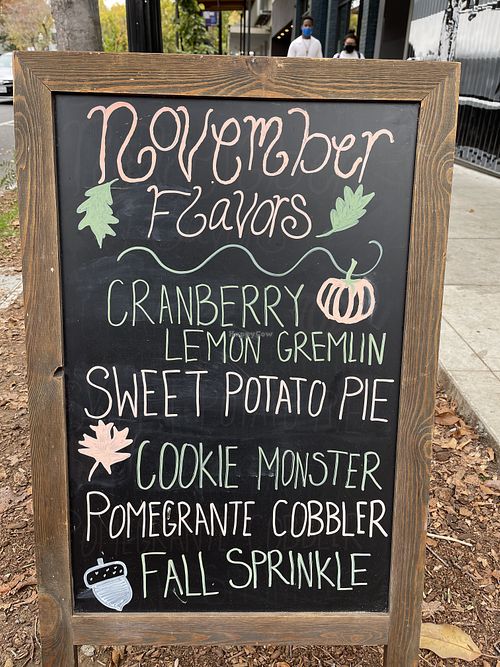 November
Flavors
CRANBERRY
LEMON GREMLIN
SWEET POTATO PIE
COOKIE MONSTER
POMEGRANTE COBBLER
FALL SPRINKLE